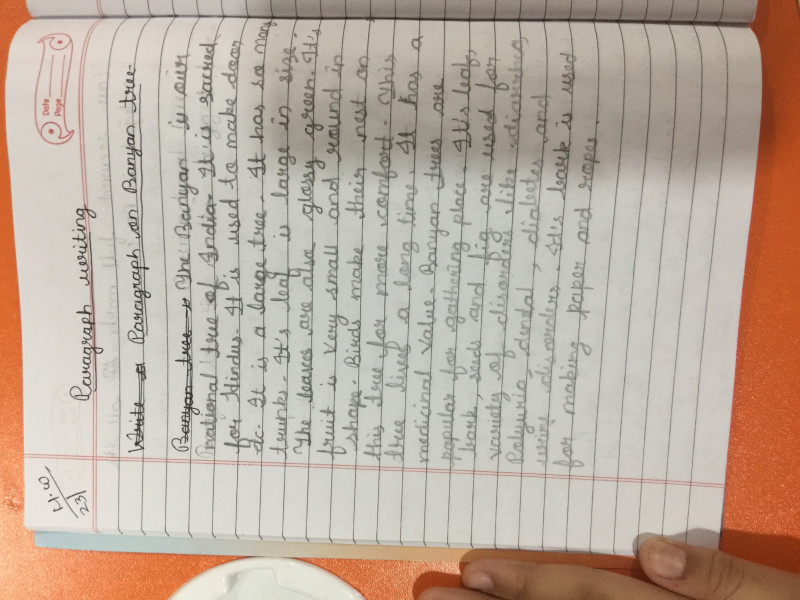 Date
Page
H.W
23
Paragraph writing
Write a Paragraph on Banyan tree.
Banyan tree → The Banyan is our
national tree of India. It is sacred
for Hindus. It is used to make door
etc. It is a large tree. It has so many
trunks. It's leaf is large in size.
The leaves are also glossy green. It's
fruit is very small and round in
shape. Birds make their nest on
this tree for more comfort. This
tree lives a long time. It has a
medicinal value. Banyan trees are
popular for gathering place. It's leaf,
bark, seeds and fig are used for
variety of disorders like diarrhea,
Polyuria, dental, diabetes and
urine disorders. It's bark is used
for making paper and ropes.